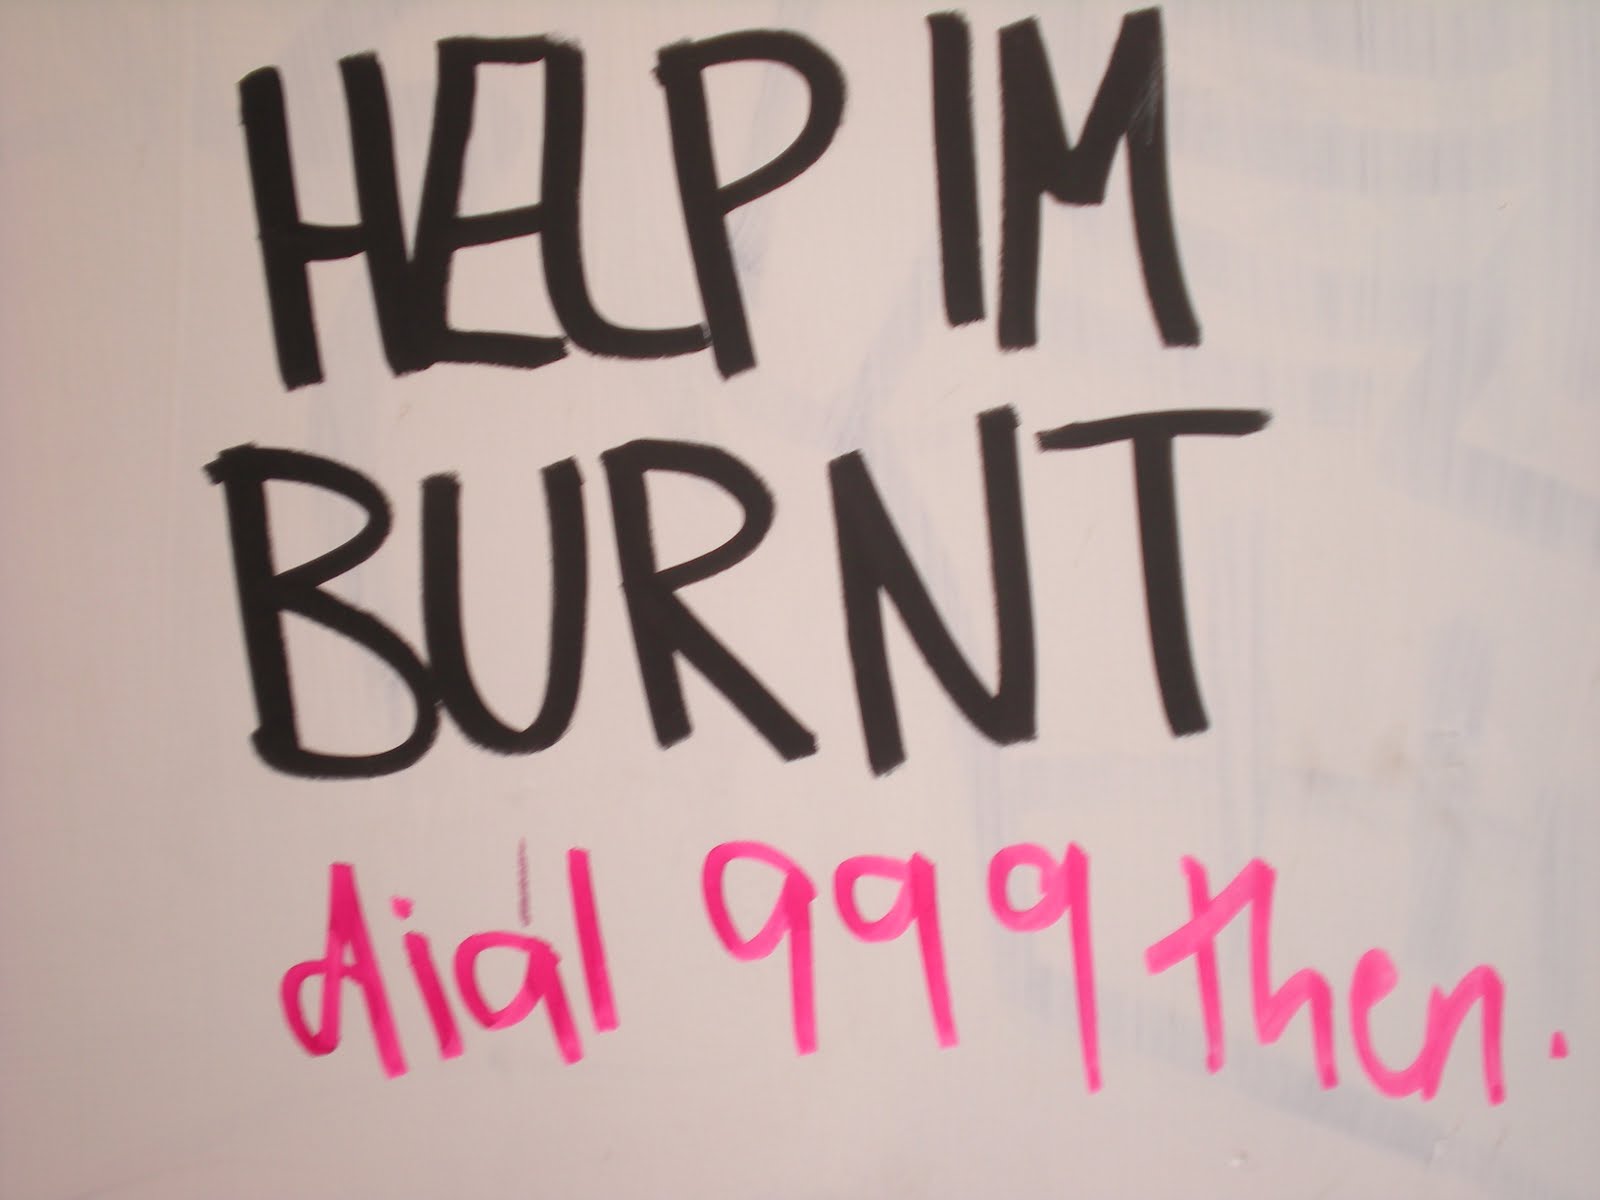 HELP IM
BURNT
dial 999 then.